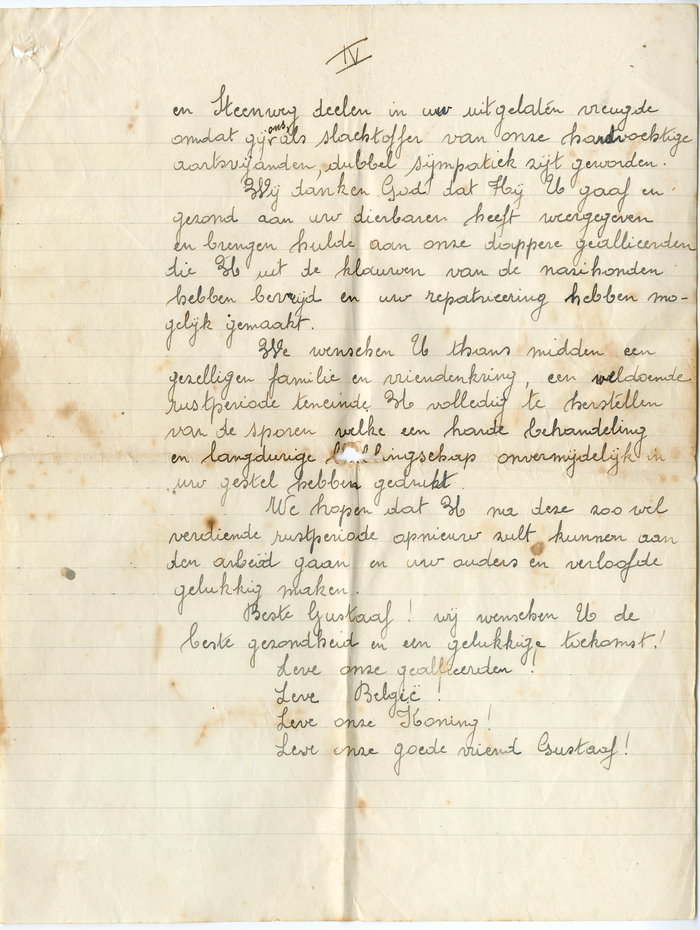 IV
en Steenweg deelen in uw uitgelaten vreugde
omdat gij ons als slachtoffer van onze hardvochtige
aartsvijanden, dubbel sympatiek zijt geworden.
Wij danken God dat Hij U gaaf en
gezond aan uw dierbaren heeft weergegeven
en brengen hulde aan onze dappere geallieerden
die U uit de klauwen van de nazihonden
hebben bevrijd en uw repatrieering hebben mo-
gelijk gemaakt.
We wenschen U thans midden een
gezelligen familie en vriendenkring, een weldoende
rustperiode teneinde U volledig te herstellen
van de sporen welke een harde behandeling
en langdurige onvermijdelijk in
uw gestel hebben gedrukt.
We hopen dat U na deze zoo wel
verdiende rustperiode opnieuw zult kunnen aan
den arbeid gaan en uw ouders en verloofde
gelukkig maken.
Beste Gustaaf! wij wenschen U de
beste gezondheid en een gelukkige toekomst!
Leve onze geallieerden!
Leve België!
Leve onze Koning!
Leve onze goede vriend Gustaaf!